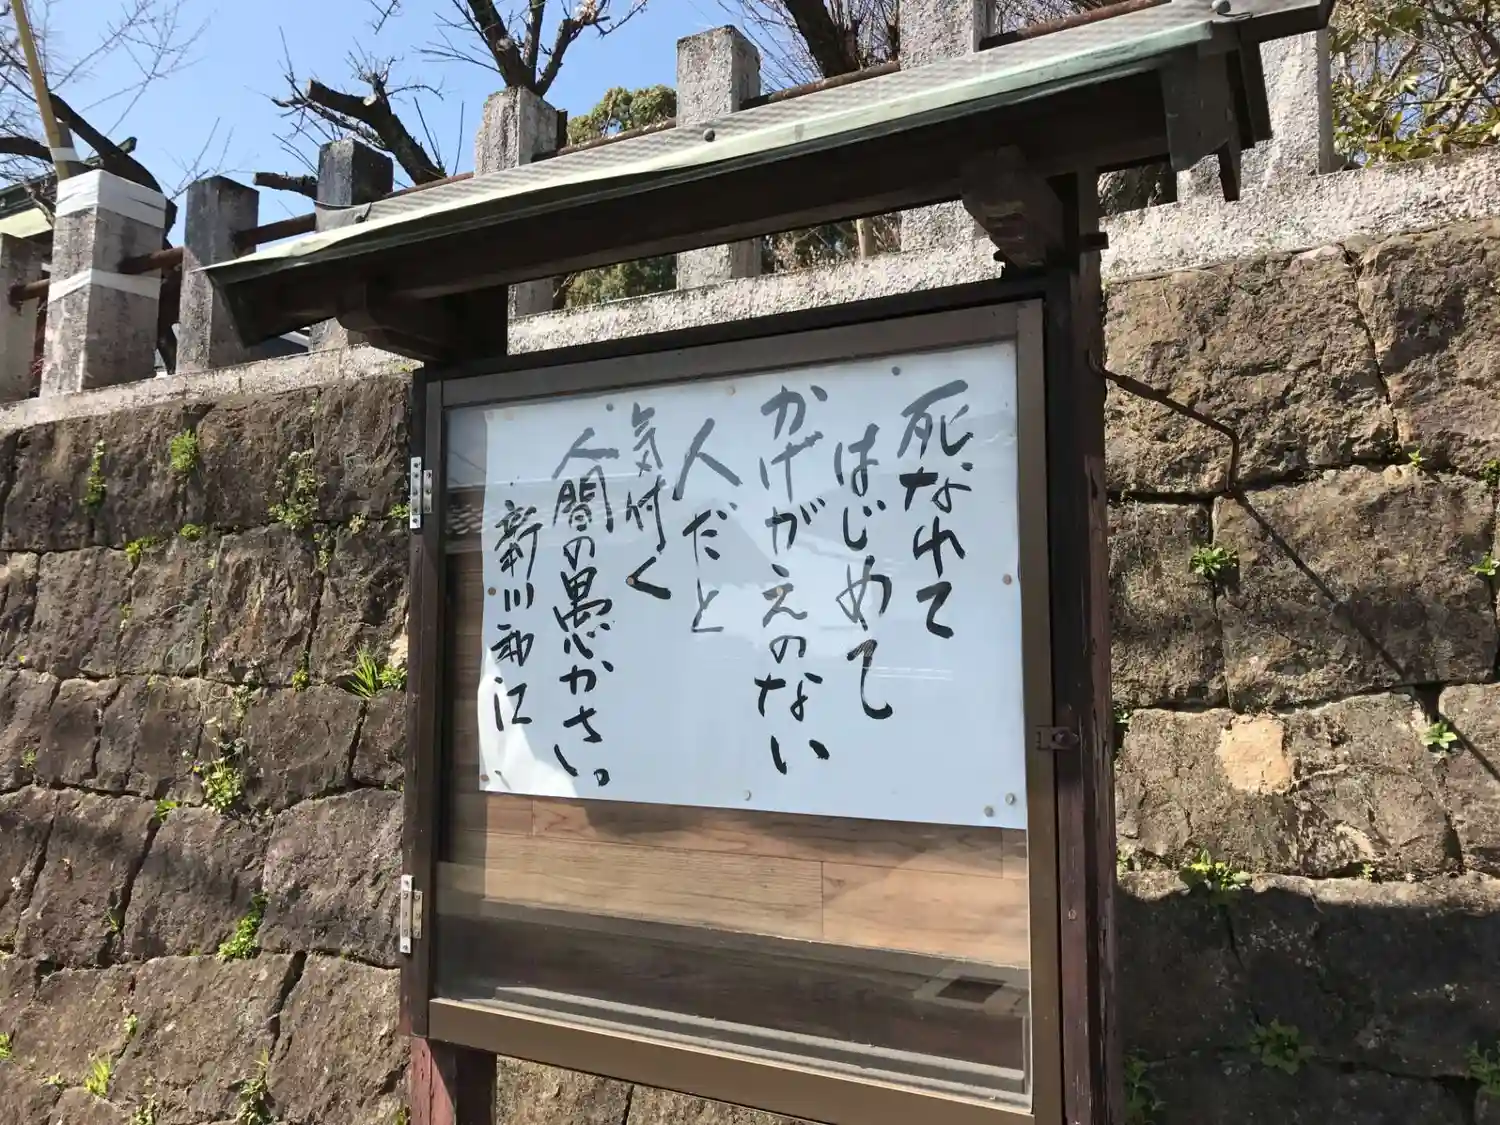 死なれて
はじめて
かけがえのない
人だと
気付く
人間の愚かさい。
新川和江